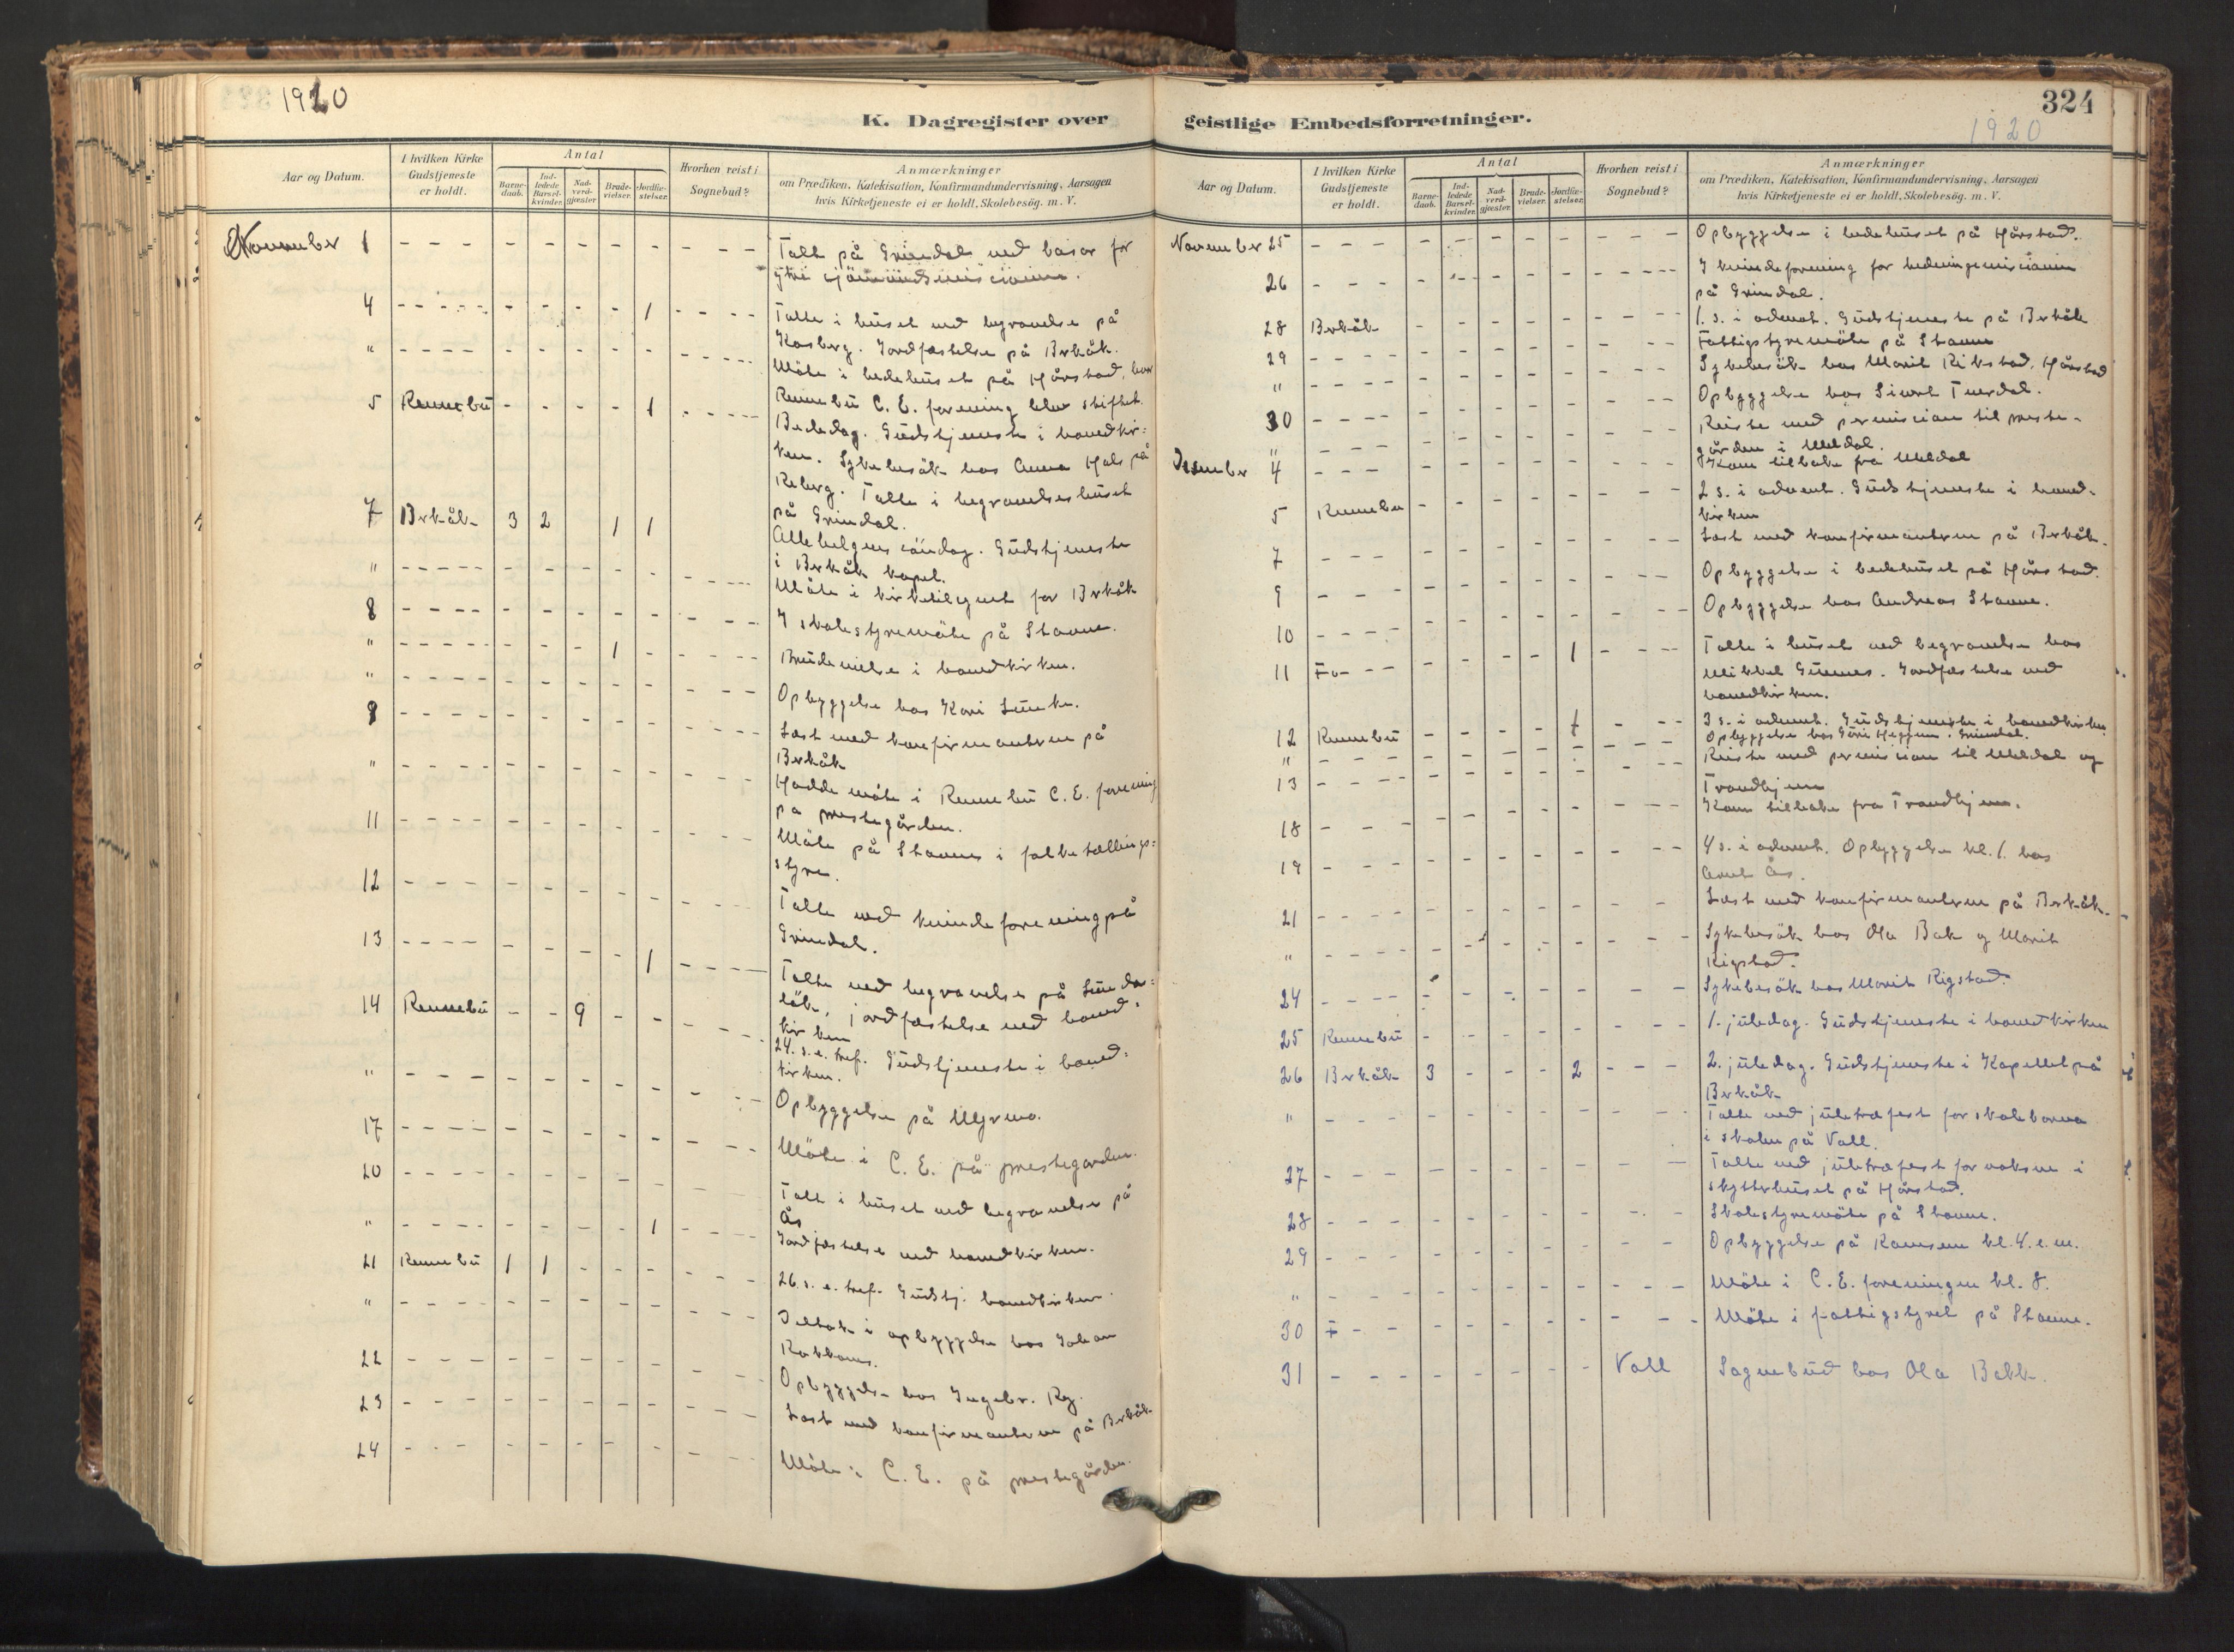 1920
K. Dagregister over
Aar og Datum.
I hvilken Kirke
Gudstjeneste
er holdt.
Antal
Barne-
daab.
Ind-
ledede
Barsel-
kvinder.
Nad-
verd-
gjæster
Brude-
vielser.
Jordfæ-
stelser.
Hvorhen reist i
Sognebud?
Anmærkninger
om Prædiken, Katekisation, Konfirmandundervisning, Aarsagen
hvis Kirketjeneste ei er holdt, Skolebesög. m. V.
November 1 Talte på Grindal ved basar for
4 1 Talte i huset ved begravelse på
Kosberg. Jordfæstelse på Berkåk.
" Möte i bedehuset på Hårstad, hvor
Rennebu C. E. forening blev stiftet.
5 Rennebu 1 Bededag. Gudstjeneste i hovedkir-
ken. Sykebesök hos Anna Hals på
Reberg. Talte i begravelseshuset
på Grindal.
7 Berkåk 3 2 1 1 Allehelgens söndag. Gudstjeneste
i Berkåk kapel.
" Möte i kirketilsynet for Berkåk
8 I skolestyremöte på Stavne.
" 1 Brudevielse i hovedkirken.
" Opbyggelse hos Kari
9 Læst med konfirmantern på
Berkåk
" Hadde möte i Rennebu C. E. forening
på prestegården.
11 Möte på Stavne i folketællings-
styre.
12 Talte ved kvindeforening på
Grindal.
13 1 Talte ved begravelse på
jordfæstelse ved hoved-
kirken
14 Rennebu 9 24. s. e. tref. Gudstjeneste i hoved-
kirken.
" Opbyggelse på Myrmo.
17 Möte i C. E. på prestegården.
20 Talte i huset ved begravelse på
Ås
" 1 Jordfæstelse ved hovedkirken.
21 Rennebu 1 1 26. s. e. tref. Gudstj. hovedkirken.
" Deltok i opbyggelse hos Johan
22 Opbyggelse hos Ingebr. Ry.
23 Læst med konfirmantern på Berkåk
24 Möte i C. E. på prestegården.
geistlige Embedsforretninger.
324
1920
Aar og Datum.
I hvilken Kirke
Gudstjeneste
er holdt.
Antal
Barne-
daab.
Ind-
ledede
Barsel-
kvinder.
Nad-
verd-
gjæster
Brude-
vielser.
Jordfæ-
stelser.
Hvorhen reist i
Sognebud?
Anmærkninger
om Prædiken, Katekisation, Konfirmandundervisning, Aarsagen
hvis Kirketjeneste ei er holdt, Skolebesög. m. V.
November 25 Opbyggelse i bedehuset på Hårstad.
26 I kvindeforening for hedningemisionen
på Grindal.
28 Berkåk 1. s. i advent. Gudstjeneste på Berkåk
29 Fattigstyremöte på Stavne
" Sykebesök hos Marit Rikstad, Hårstad
30 Opbyggelse hos Sivert
" Reiste med permision til preste-
gården i Meldal.
Desember 4 Kom tilbake fra Meldal
5 Rennebu 2 s. i advent. Gudstjeneste i hoved-
kirken
7 Læst med konfirmantern på Berkåk.
9 Opbyggelse i bedehuset på Hårstad.
10 Opbyggelse hos Andreas Stavne.
11 1 Talte i huset ved begravelse hos
Mikkel Gunnes. Jordfæstelse ved
hovedkirken.
12 Rennebu 3 s. i advent. Gudstjeneste i hovedkirken
" Opbyggelse hos Heggem. Grindal.
13 Reiste med permision til Meldal og
Trondhjem
18 Kom tilbake fra Trondhjem.
19 4 s. i advent. Opbyggelse kl. 1. hos
Arnt Ås.
21 Læst med konfirmantern på Berkåk.
" Sykebesök hos Ola Bak og Marit
Rigstad.
24 Sykebesök hos Marit Rigstad.
25 Rennebu 1. juledag. Gudstjeneste i hovedkirken
26 Berkåk 3 2 2. juledag. Gudstjeneste i Kapellet på
Berkåk
" Talte ved juletræfest for skoleborna
i skolen på Voll.
27 Talte ved juletræfest for voksne i
skytterhuset på Hårstad.
28 Skolestyremöte på Stavne.
29 Opbyggelse på Ramsem kl. 4. e. m.
" Möte i C. E. foreningen kl. 8.
30 Möte i fattigstyret på Stavne.
31 Voll Sognebud hos Ola Bakk.